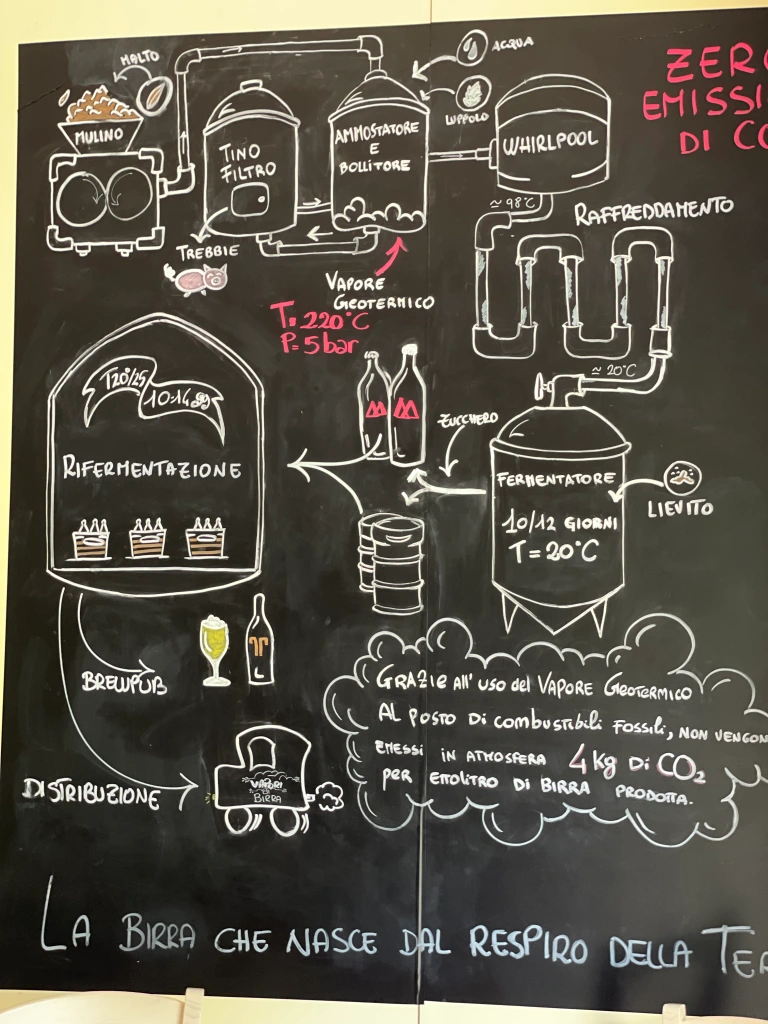 MALTO
MULINO
TINO
FILTRO
TREBBIE
AMMOSTATORE
E
BOLLITORE
ACQUA
LUPPOLO
WHIRLPOOL
ZERO
EMISSI
DI CO
≃ 98°C
RAFFREDDAMENTO
VAPORE
GEOTERMICO
T= 220°C
P= 5 bar
≃ 20°C
T20°/25
10-14 gg
RIFERMENTAZIONE
ZUCCHERO
FERMENTATORE
10/12 GIORNI
T = 20°C
LIEVITO
BREWPUB
DISTRIBUZIONE
VAPORI
DI
BIRRA
GRAZIE All' USO del VAPORE GEOTERMICO
AL POSTO DI COMBUSTIBILI FOSSILI, NON VENGON
EMESSI IN ATMOSFERA 4 Kg DI CO2
PER ETTOLITRO DI BIRRA PRODOTTA.
LA BIRRA CHE NASCE DAL RESPIRO DELLA TER